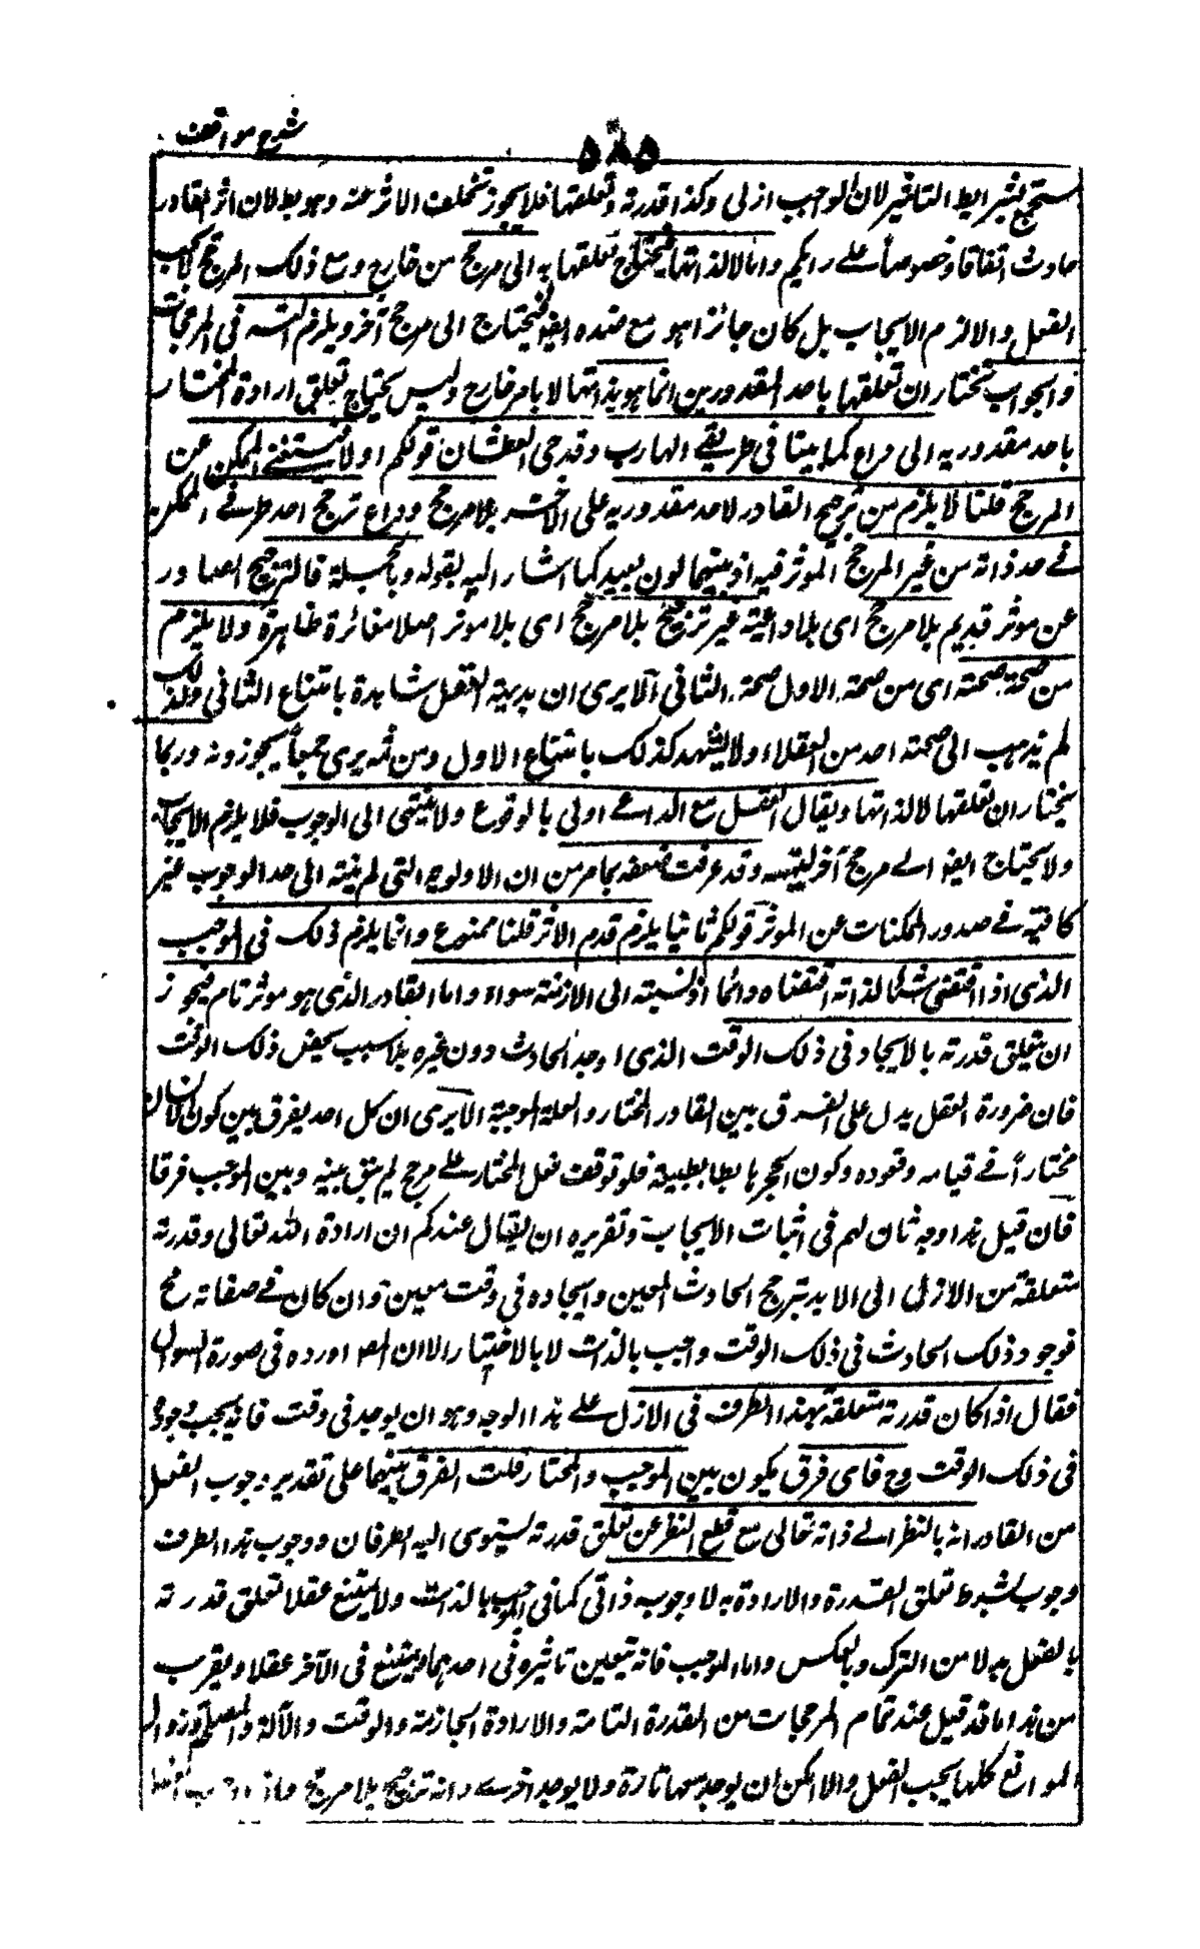 شرح مواقف
٥٨٥
مستجمع بشرايط التاثير لان الواجب ازلى وكذا قدرته وتعلقها فلا يجوز تخلف الاثر عنه وهو بط لان اثر القادر
حادث اتفاقا وخصوصاً على رايكم واما لا لذاتها فيحتاج تعلقها به الى مرجح من خارج ومع ذلك المرجح لا يجب
الفعل والا لزم الايجاب بل كان جائزا هو مع ضده ايضا فيحتاج الى مرجح آخر ويلزم التسـ فى المرجحات
والجواب نختار ان تعلقها باحد المقدورين انما هو بذاتها لا بامر خارج وليس يحتاج تعلق ارادة المختار
باحد مقدوريه الى داع كما بينا فى طريقى الهارب وقدحى العطشان قولكم اولا فيستغنى الممكن عن
المرجح قلنا لا يلزم من ترجيح القادر لاحد مقدوريه على الآخر بلا مرجح وداع ترجح احد طرفى الممكن
فى حد ذاته من غير المرجح الموثر فيه اذ بينهما لون بعيد كما اشار اليه بقوله وبالجملة فالترجيح الصادر
عن موثر قديم بلا مرجح اى بلا داعية غير ترجح بلا مرجح اى بلا موثر اصلا مغائرة ظاهرة ولا يلزم
من صحته صحته اى من صحة الاول صحة الثانى الا يرى ان بديهة العقل شاهدة بامتناع الثانى ولذلك
لم يذهب الى صحته احد من العقلاء ولا يشهد كذلك بامتناع الاول ومن ثمه يرى جمعاً يجوزونه وربما
يختار ان تعلقها لا لذاتها ويقال الفعل مع الداعى اولى بالوقوع ولا ينتهى الى الوجوب فلا يلزم الايجاب
ولا يحتاج ايضا الى مرجح آخر ليتسـ وقد عرفت ضعفه بما مر من ان الاولوية التى لم ينته الى حد الوجوب غير
كافية فى صدور الممكنات عن الموثر قولكم ثانيا يلزم قدم الاثر قلنا ممنوع وانما يلزم ذلك فى الموجب
الذى اذا اقتضى شئا لذاته اقتضاه دائما اذ نسبته الى الازمنة سواء واما القادر الذى هو موثر تام فيجوز
ان يتعلق قدرته بالايجاد فى ذلك الوقت الذى اوجد الحادث دون غيره بلا سبب يخص ذلك الوقت
فان ضرورة العقل يدل على الفرق بين القادر المختار والعلة الموجبة الا يرى ان كل احد يفرق بين كون الانسان
مختاراً فى قيامه وقعوده وكون الحجر هابطا بطبيعة فلو توقف فعل المختار على مرجح لم يبق بينه وبين الموجب فرقا
فان قيل هذا وجه ثان لهم فى اثبات الايجاب وتقريره ان يقال عندكم ان ارادة الله تعالى وقدرته
متعلقة من الازل الى الابد بترجيح الحادث المعين وايجاده فى وقت معين وان كان فى صفاته مح
فوجود ذلك الحادث فى ذلك الوقت واجب بالذات لا بالاختيار الا ان المصـ اورده فى صورة السوال
فقال اذا كان قدرته متعلقة بهذا الطرف فى الازل على هذا الوجه وهو ان يوجد فى وقت فانه يجب وجوده
فى ذلك الوقت وح فاى فرق يكون بين الموجب والمختار قلت الفرق بينهما على تقدير وجوب الفعل
من القادر انه بالنظر الى ذاته تعالى مع قطع النظر عن تعلق قدرته يستوى اليه الطرفان ووجوب هذا الطرف
وجوب بشرط تعلق القدرة والارادة به لا وجوب ذاتى كما فى الموجب بالذات ولا يمتنع عقلا تعلق قدرته
بالفعل بدلا من الترك وبالعكس واما الموجب فانه يتعين تاثيره فى احدهما ويمتنع فى الآخر عقلا ويقرب
من هذا ما قد قيل عند تمام المرجحات من القدرة التامة والارادة الجازمة والوقت والآلة والمصلحة وزوال
الموانع كلها يجب الفعل والا امكن ان يوجد معها تارة ولا يوجد اخرى وانه ترجيح بلا مرجح